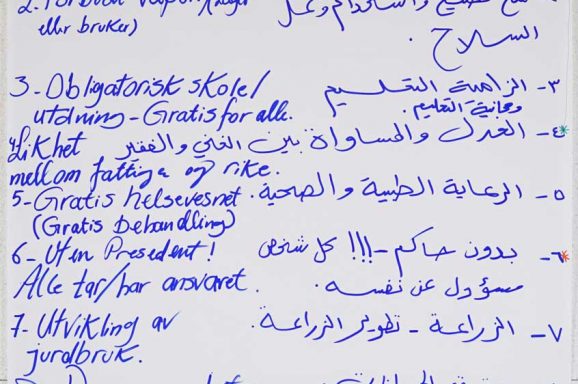 2. Forbudt våpen (lager
eller bruker)
منع تصنيع واستخدام وعمل
السلاح.
3 - Obligatorisk skole/
utdning - Gratis for alle.
٣- الزامية التعليم
ومجانية التعليم.
4 Likhet
mellom fattige og rike.
٤- العدل والمساواة بين الغني والفقير
5 - Gratis helsevesnet.
(Gratis Behandling)
٥- الرعاية الطبية والصحية.
6 - Uten President!
Alle tar/har ansvaret.
٦- بدون حاكم -!!! كل شخص
مسؤول عن نفسه.
7- Utvikling av
jurdbruk.
٧- الزراعة - تطوير الزراعة.